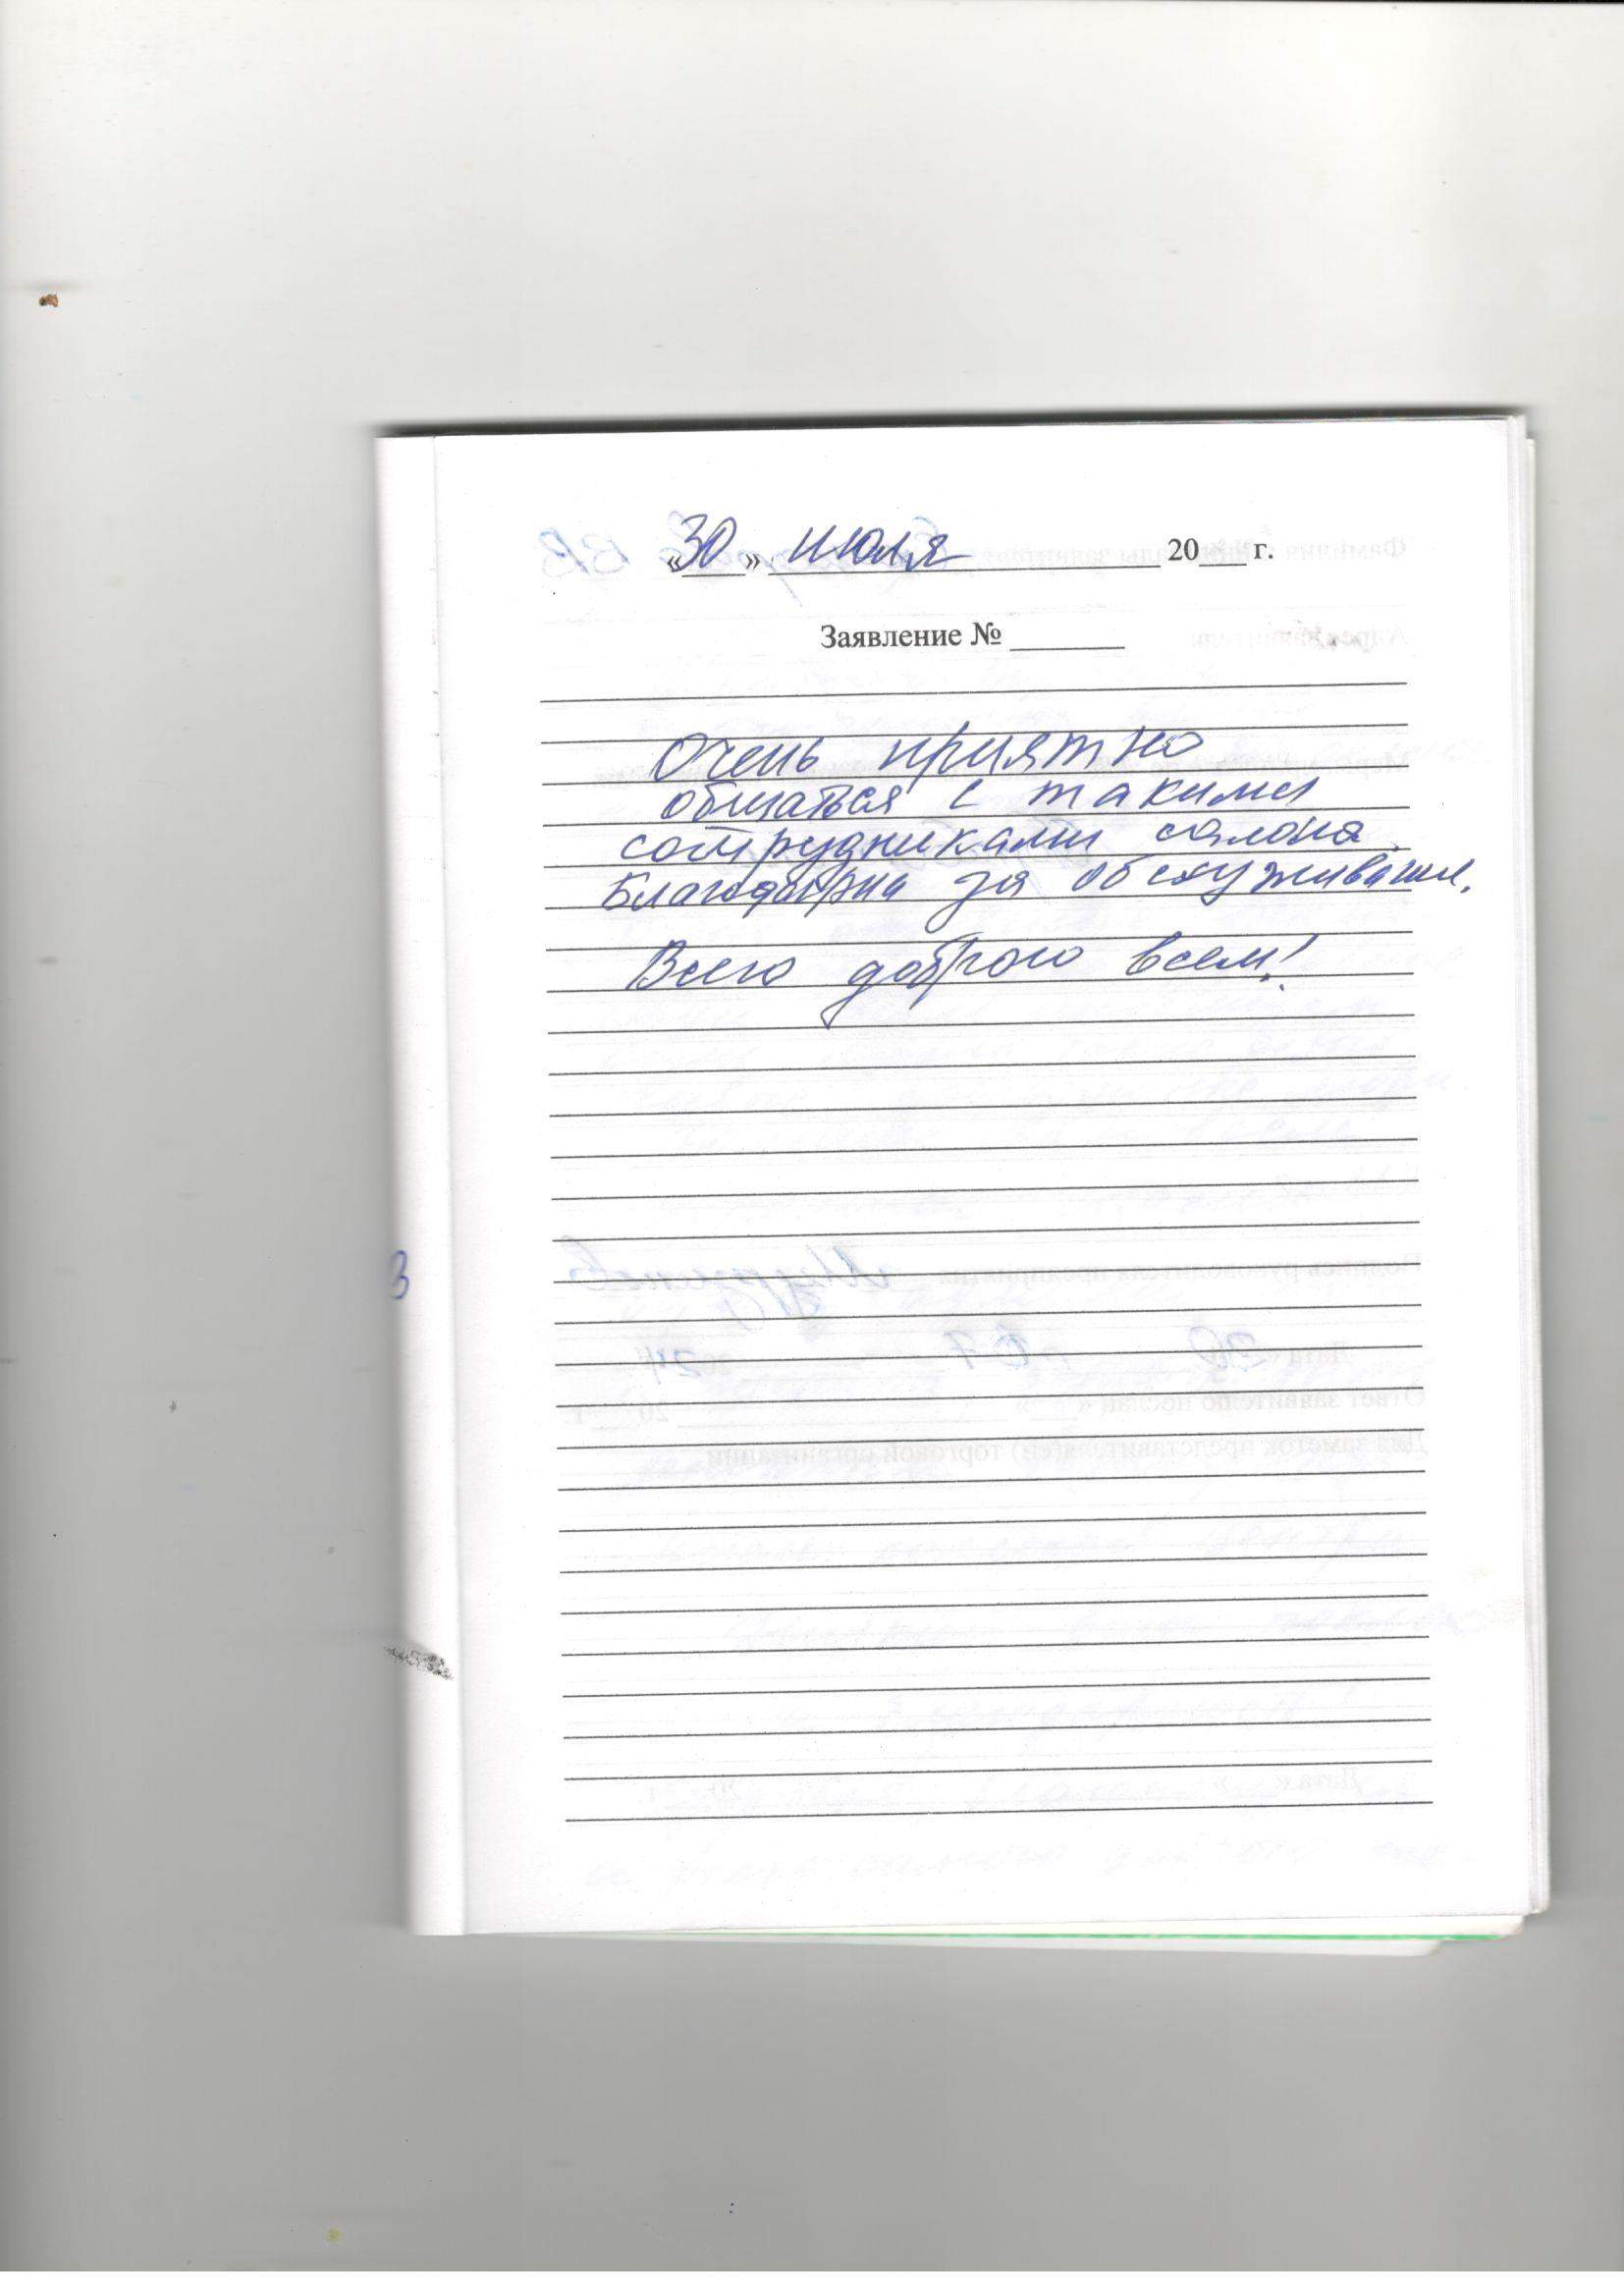 «30» июля 20___ г.
Заявление № _______
Очень приятно
общаться с такими
сотрудниками салона.
Благодарна за обслуживание.
Всего доброго всем!